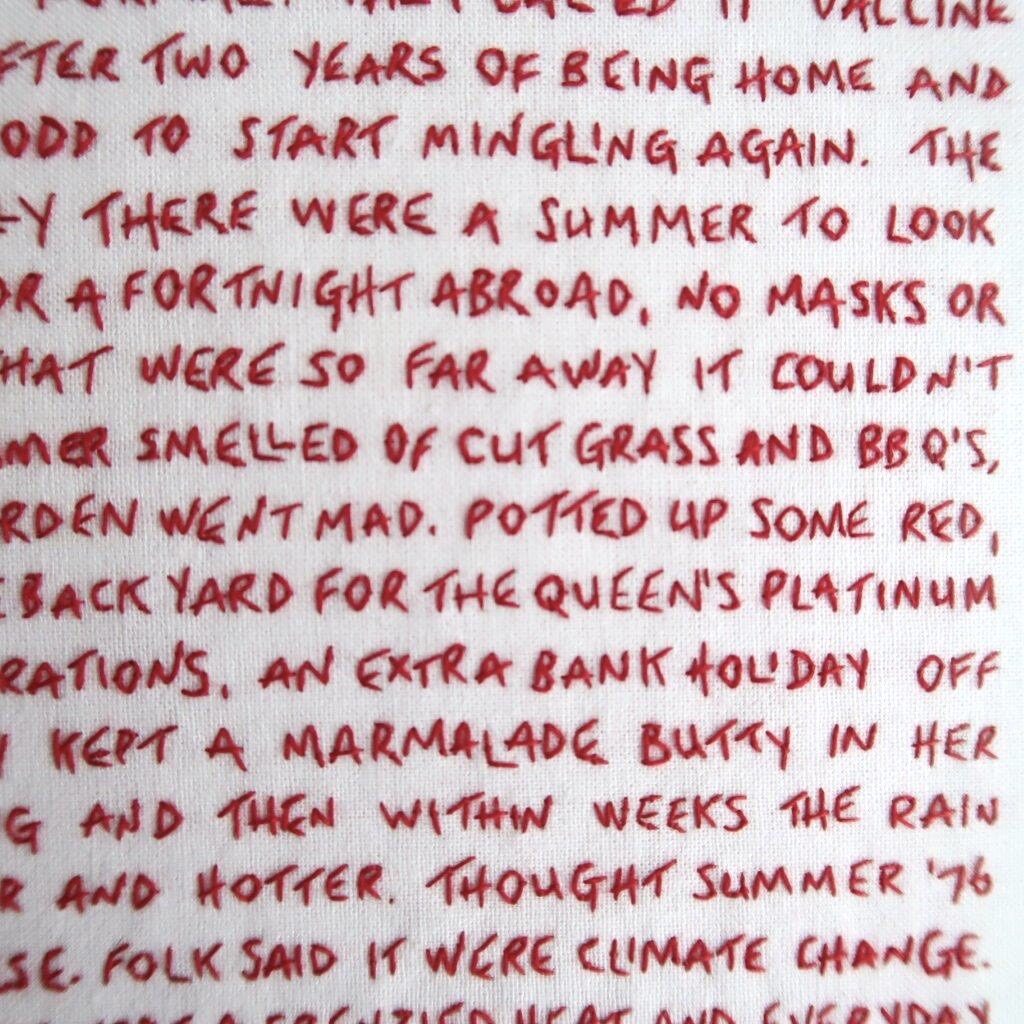 THEY CALLED IT VACCINE
FTER TWO YEARS OF BEING HOME AND
ODD TO START MINGLING AGAIN. THE
LY THERE WERE A SUMMER TO LOOK
OR A FORTNIGHT ABROAD, NO MASKS OR
HAT WERE SO FAR AWAY IT COULDN'T
MER SMELLED OF CUT GRASS AND BBQ'S,
RDEN WENT MAD. POTTED UP SOME RED,
E BACK YARD FOR THE QUEEN'S PLATINUM
RATIONS, AN EXTRA BANK HOLIDAY OFF
Y KEPT A MARMALADE BUTTY IN HER
G AND THEN WITHIN WEEKS THE RAIN
R AND HOTTER. THOUGHT SUMMER '76
SE. FOLK SAID IT WERE CLIMATE CHANGE.
A FRENZIED HEAT AND EVERYDAY